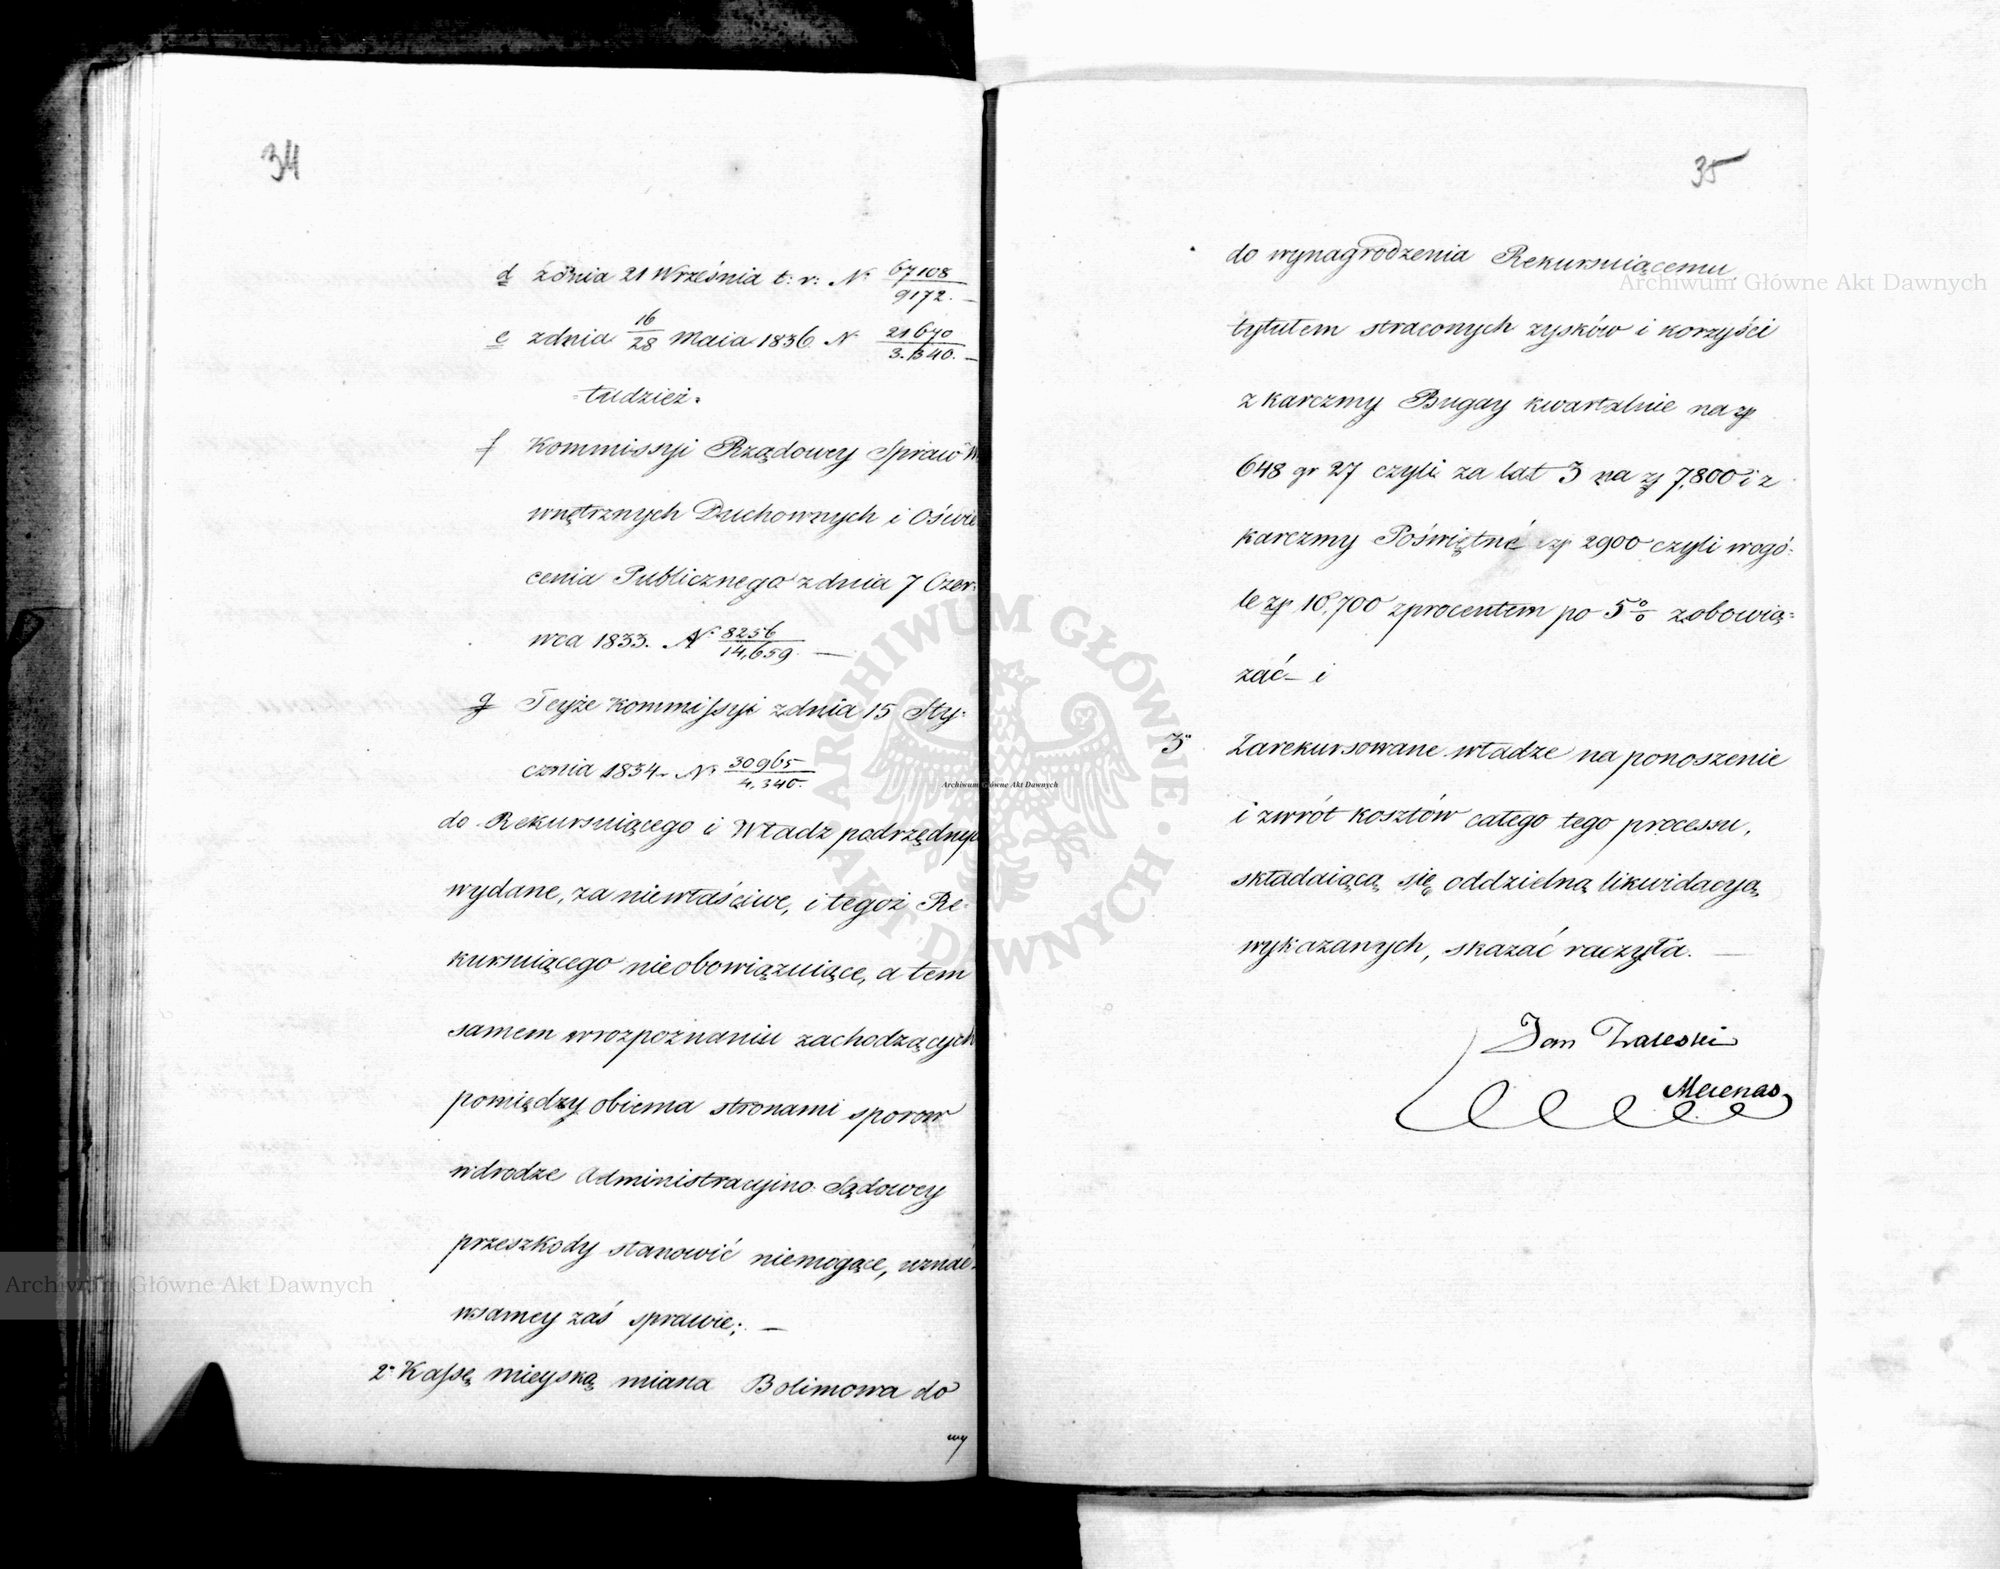 34
d zdnia 21 Września t: r: N: 67108/9172. —
e zdnia 16/28 Maia 1836 N 21670/3.1340. —
tudzież.
f Kommissyi Rządowey Spraw W
wnętrznych Duchownych i Oświe
cenia Publicznego zdnia 7 Czer-
wca 1833. N: 8256/14,659. —
g Teyże Kommissyi zdnia 15 Sty-
cznia 1834. N: 30965/4,340.
do Rekursuiącego i Władz podrzędnych
wydane, za niewłaściwe, i tegoż Re-
kursuiącego nieobowiązuiące, a tem
samem w rozpoznaniu zachodzących
pomiędzy obiema stronami sporow
w drodze Administracyino Sądowey
przeszkody stanowić niemogące, uznać
w samey zaś sprawie; —
2° Kassę mieyską miasta Bolimowa do
wy
35
do wynagrodzenia Rekursuiącemu
tytułem straconych zysków i korzyści
z karczmy Bugay kwartalnie na zp
648 gr 27 czyli za lat 3 na zp 7,800 i z
karczmy Poświętné zp 2900 czyli wogó-
le zp 10,700 z procentem po 5 % zobowią-
zać – i
3° Zarekursowane władze na ponoszenie
i zwrót kosztów całego tego processu,
składaiącą się oddzielną likwidacyą
wykazanych, skazać raczyła. —
Jan Zaleski
Mecenas
ARCHIWUM GŁÓWNE · AKT DAWNYCH ·
Archiwum Główne Akt Dawnych
Archiwum Główne Akt Dawnych
Archiwum Główne Akt Dawnych